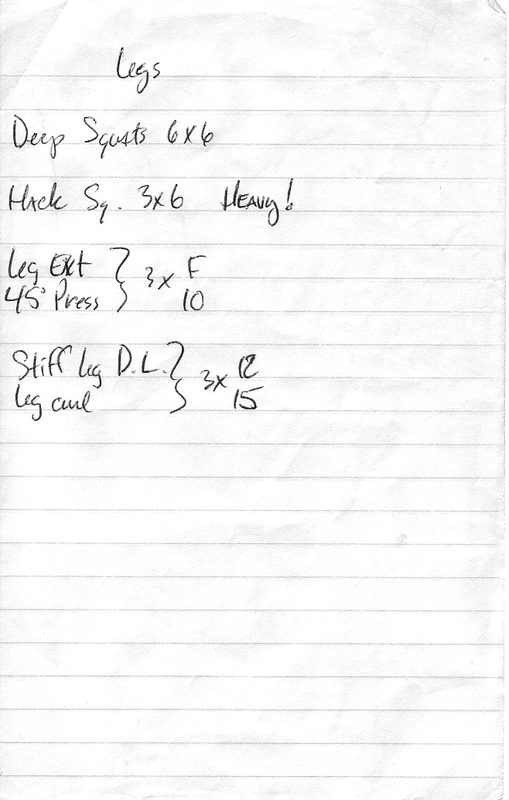 Legs
Deep Squats 6x6
Hack Sq. 3x6 Heavy!
Leg Ext } 3 x F
45° Press } 10
Stiff Leg D.L. } 3x 12
Leg curl } 15